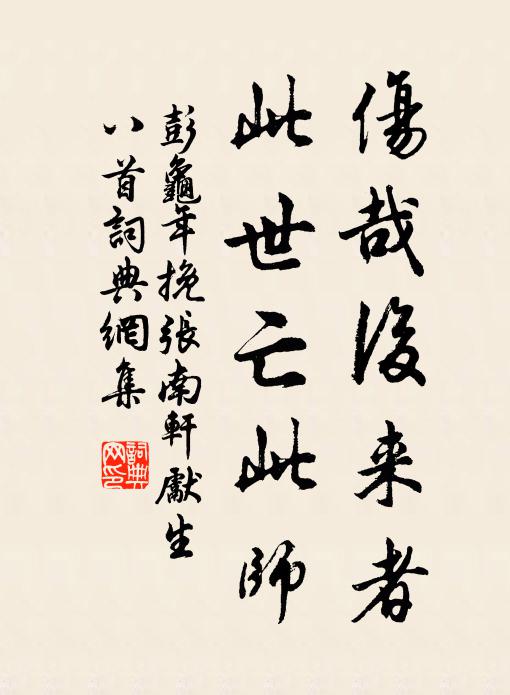 傷哉後来者
此世亡此師
彭龜年挽張南軒獻生
八首詞典網集
詞典網印